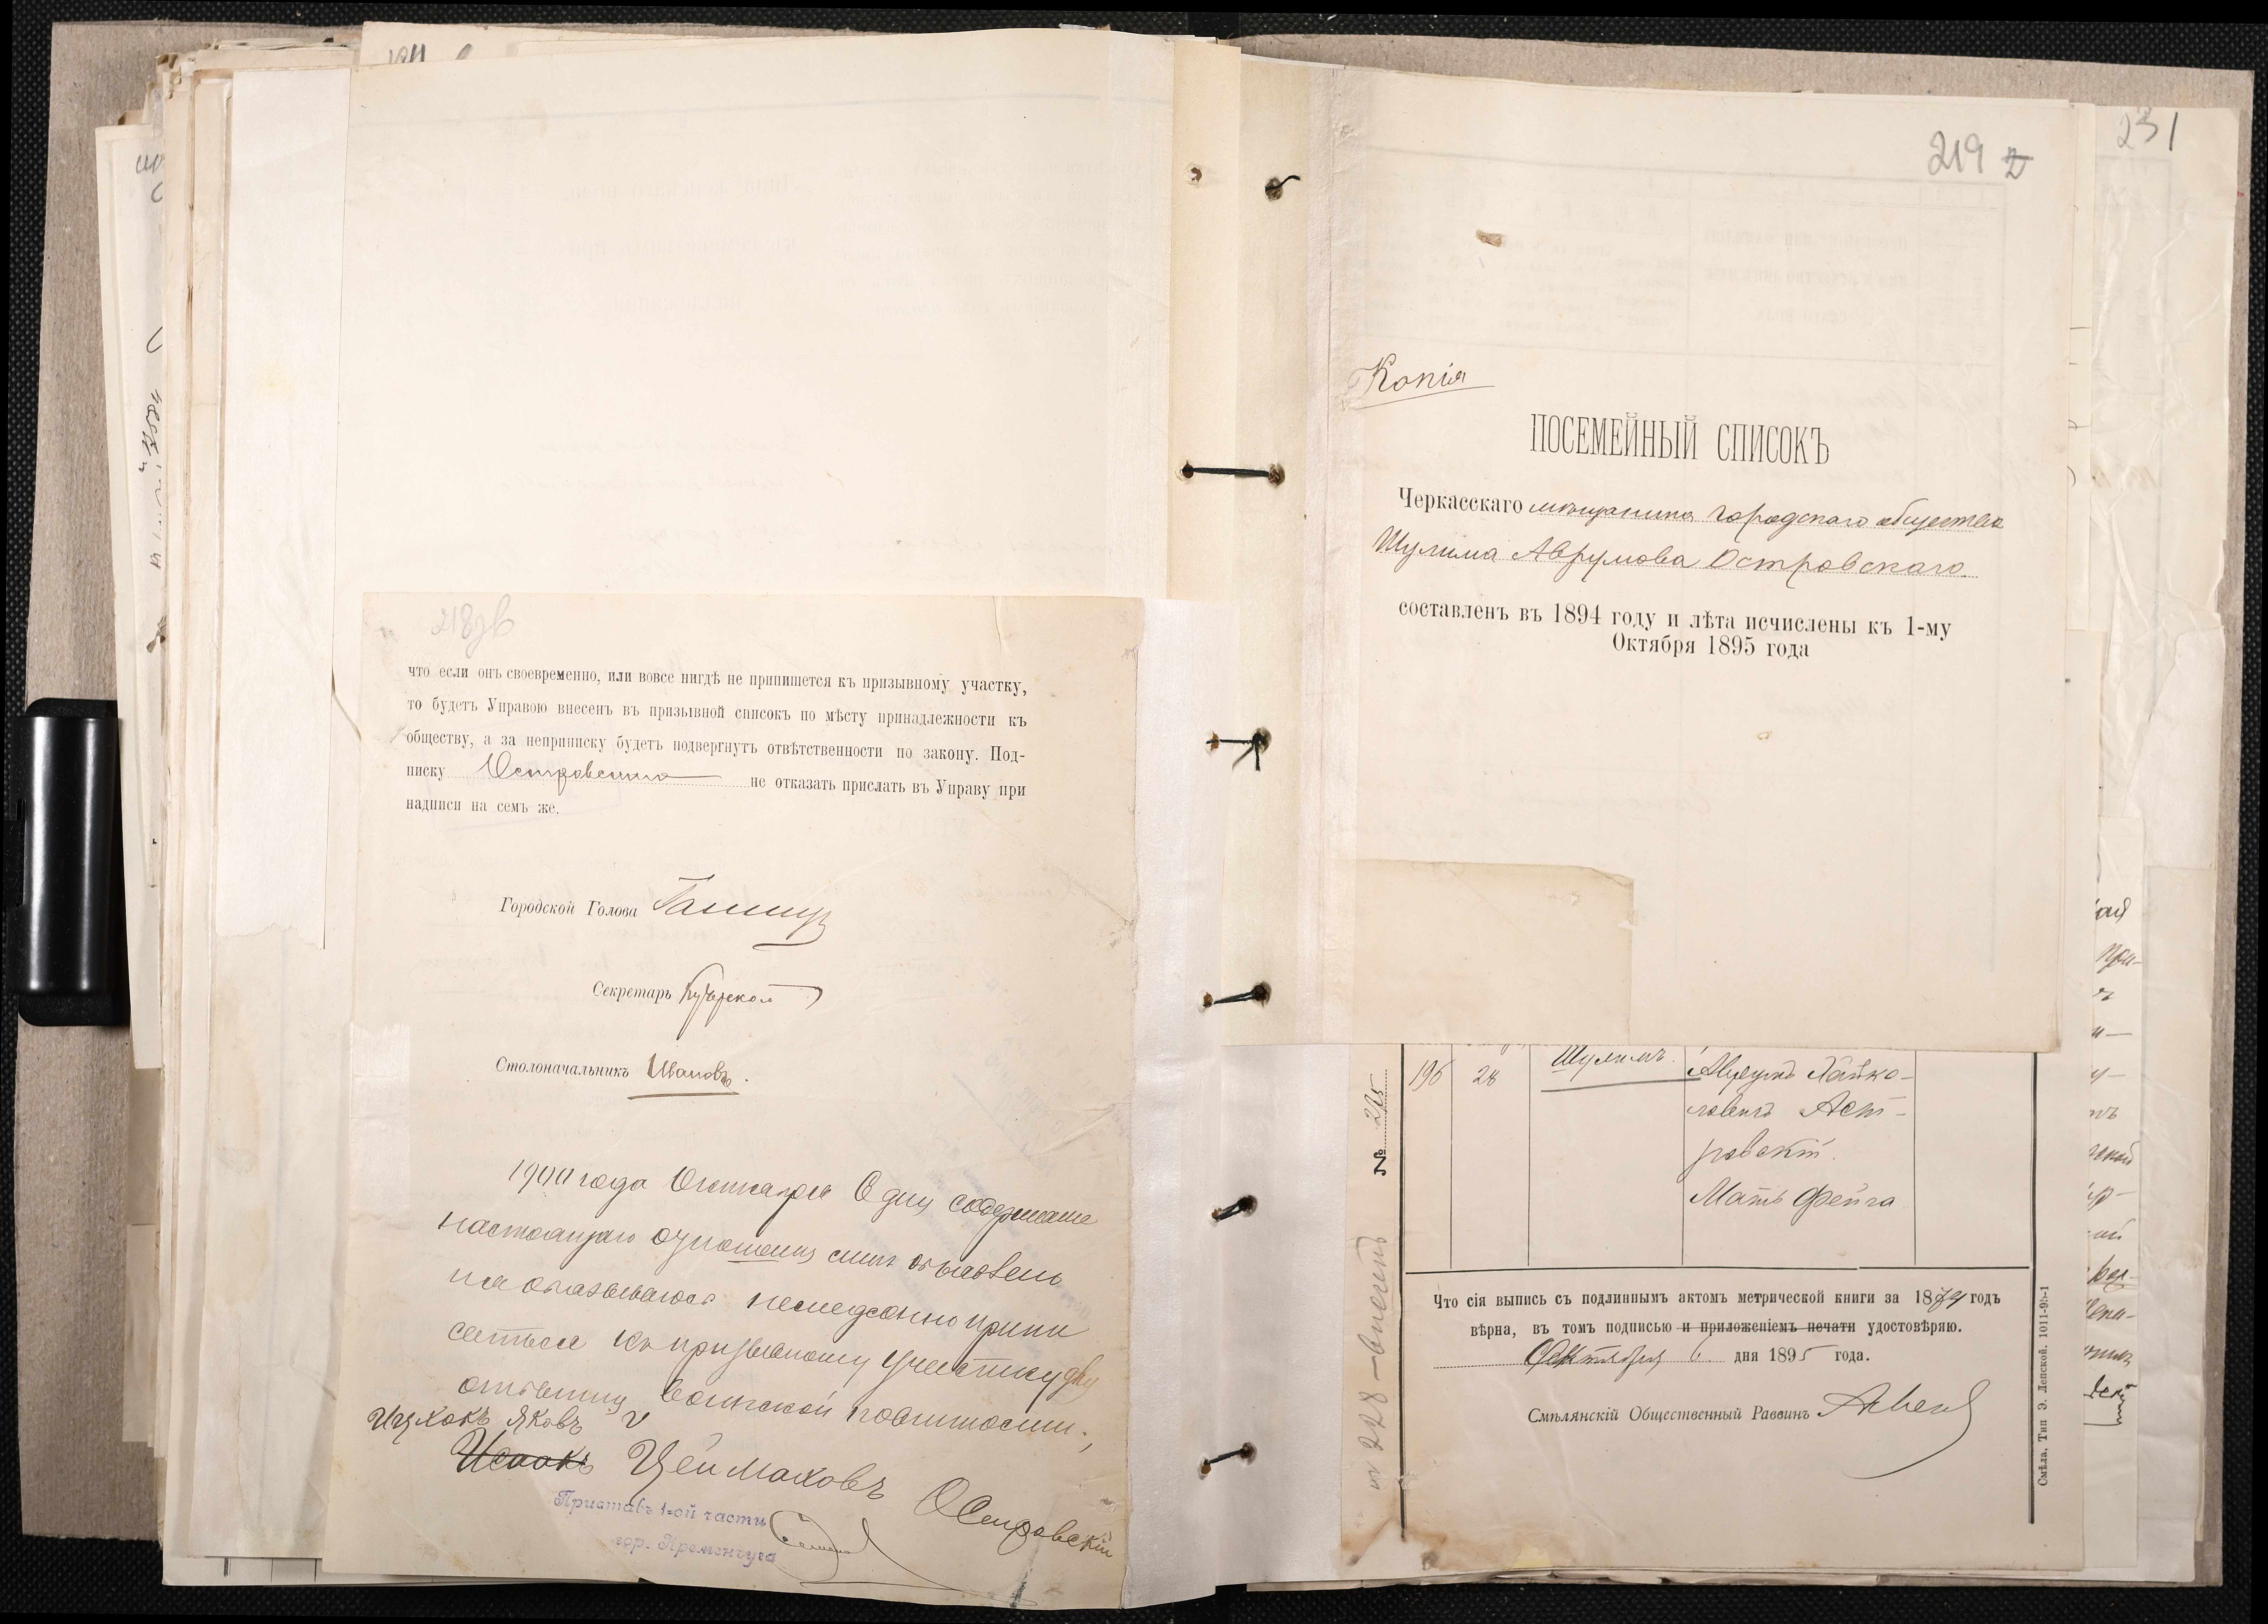 218зв
что если онъ своевременно, или вовсе нигдѣ не припишется къ призывному участку,
то будетъ Управою внесенъ въ призывной списокъ по мѣсту принадлежности къ
обществу, а за неприписку будетъ подвергнутъ отвѣтственности по закону. Под-
писку Островскаго не отказать прислать въ Управу при
надписи на семъ же.
Городской Голова
Секретарь
Столоначальникъ Ивановъ.
1900 года Октября 6 дня содержаніе
настоящаго отношенія мнѣ объявлено
и я обязываюсь немедленно припи
саться къ призывному участку для
отбытія воинской повинности.,
Ицхокъ Яковъ V
Исаакъ Цеймаховъ Островскій
Приставъ 1-ой части
гор. Кременчуга
231
219 2
Копія
ПОСЕМЕЙНЫЙ СПИСОКЪ
Черкасскаго мѣщанина городскаго общества
Шулима Аврумова Островскаго
составленъ въ 1894 году и лѣта исчислены къ 1-му
Октября 1895 года
№ 225
къ 228 — внесенъ
196 28 Шулимъ. Аврумъ Хаймо-
вичъ Аст-
ровскій.
Мать Фейга
Что сія выпись съ подлиннымъ актомъ метрической книги за 1874 годъ
вѣрна, въ томъ подписью и приложеніемъ печати удостовѣряю.
Октября 6 дня 1895 года.
Смѣлянскій Общественный Раввинъ
Смѣла, Тип Э. Лепской. 1011-95-1